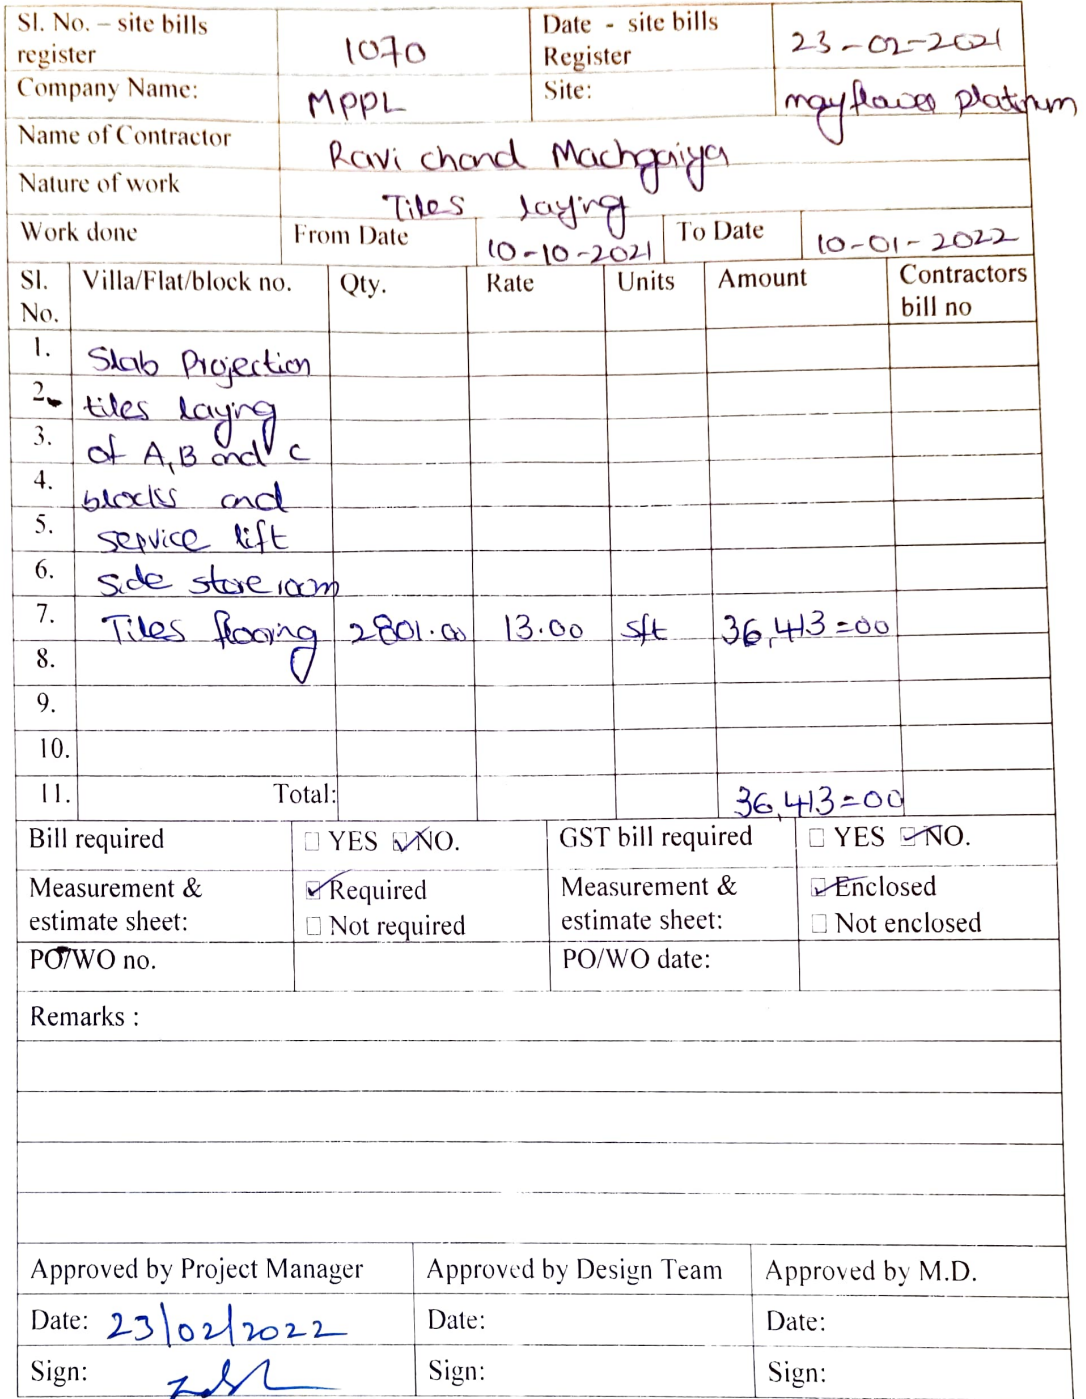 Sl. No. – site bills register 1070 Date - site bills Register 23-02-2021
Company Name: MPPL Site: mayflower platinum
Name of Contractor Ravi chand Machgaiya
Nature of work Tiles laying
Work done From Date 10-10-2021 To Date 10-01-2022
Sl. No. Villa/Flat/block no. Qty. Rate Units Amount Contractors bill no
1. Slab Projection
2. tiles laying
3. of A, B and C
4. blocks and
5. service lift
6. side store room
7. Tiles flooring 2801.00 13.00 sft 36,413=00
8.
9.
10.
11. Total: 36,413=00
Bill required ☐ YES ☑ NO. GST bill required ☐ YES ☑ NO.
Measurement & estimate sheet: ☑ Required ☐ Not required Measurement & estimate sheet: ☑ Enclosed ☐ Not enclosed
PO/WO no. PO/WO date:
Remarks :
Approved by Project Manager Approved by Design Team Approved by M.D.
Date: 23/02/2022 Date: Date:
Sign: Sign: Sign: